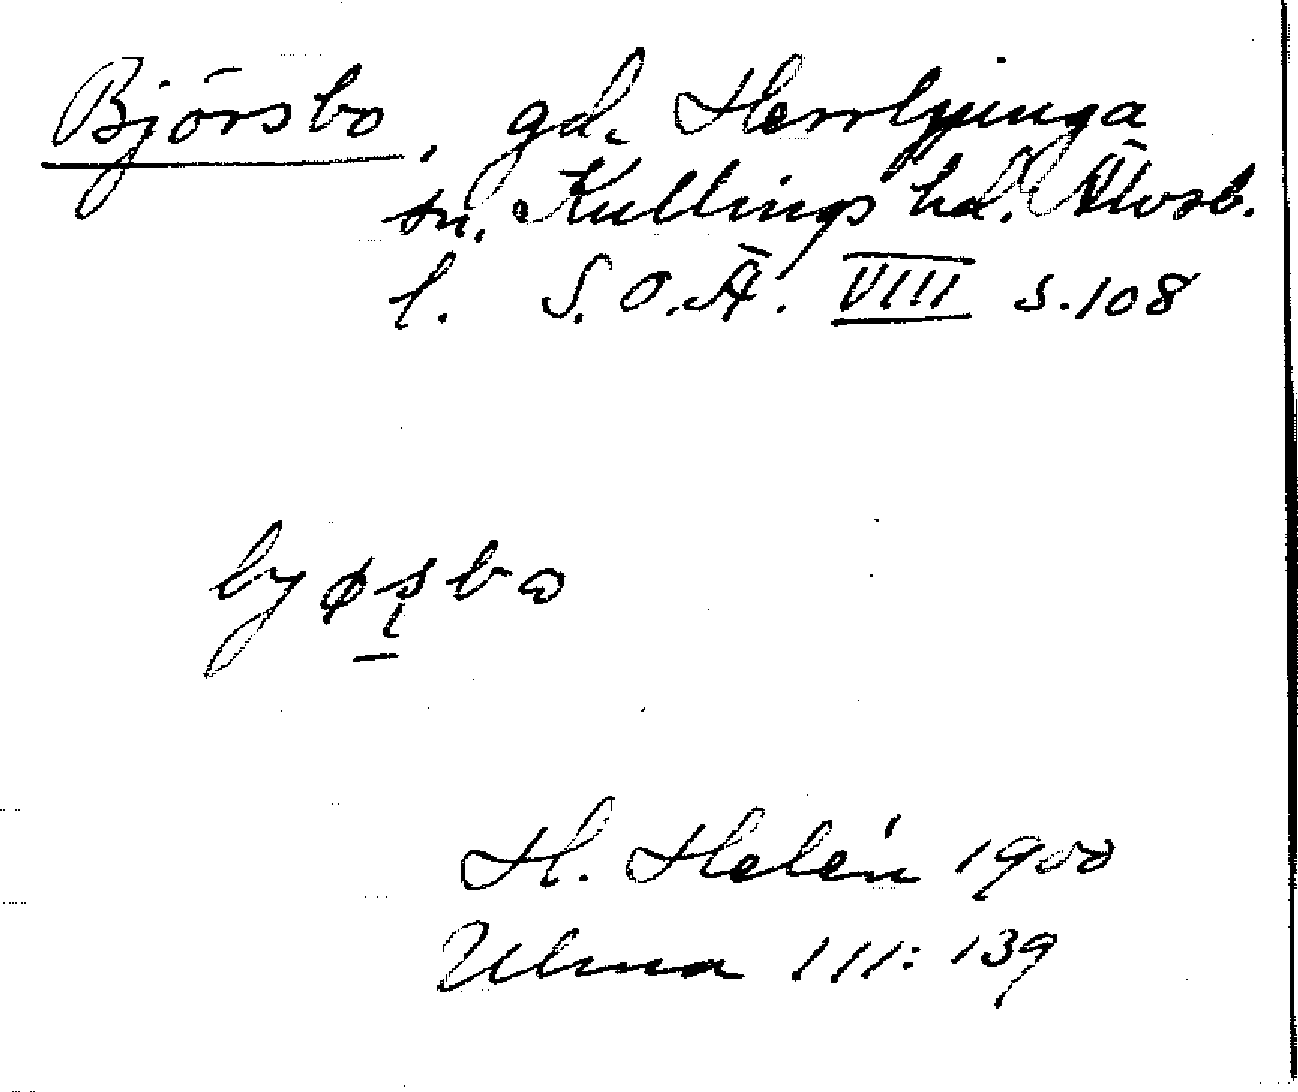 Björsbo, gd. Herrljunga
sn. Kullings hd. Älvsb.
l. S.O.Ä. VIII s.108
bjøsbω
H. Helén 1900
Ulma 111:139